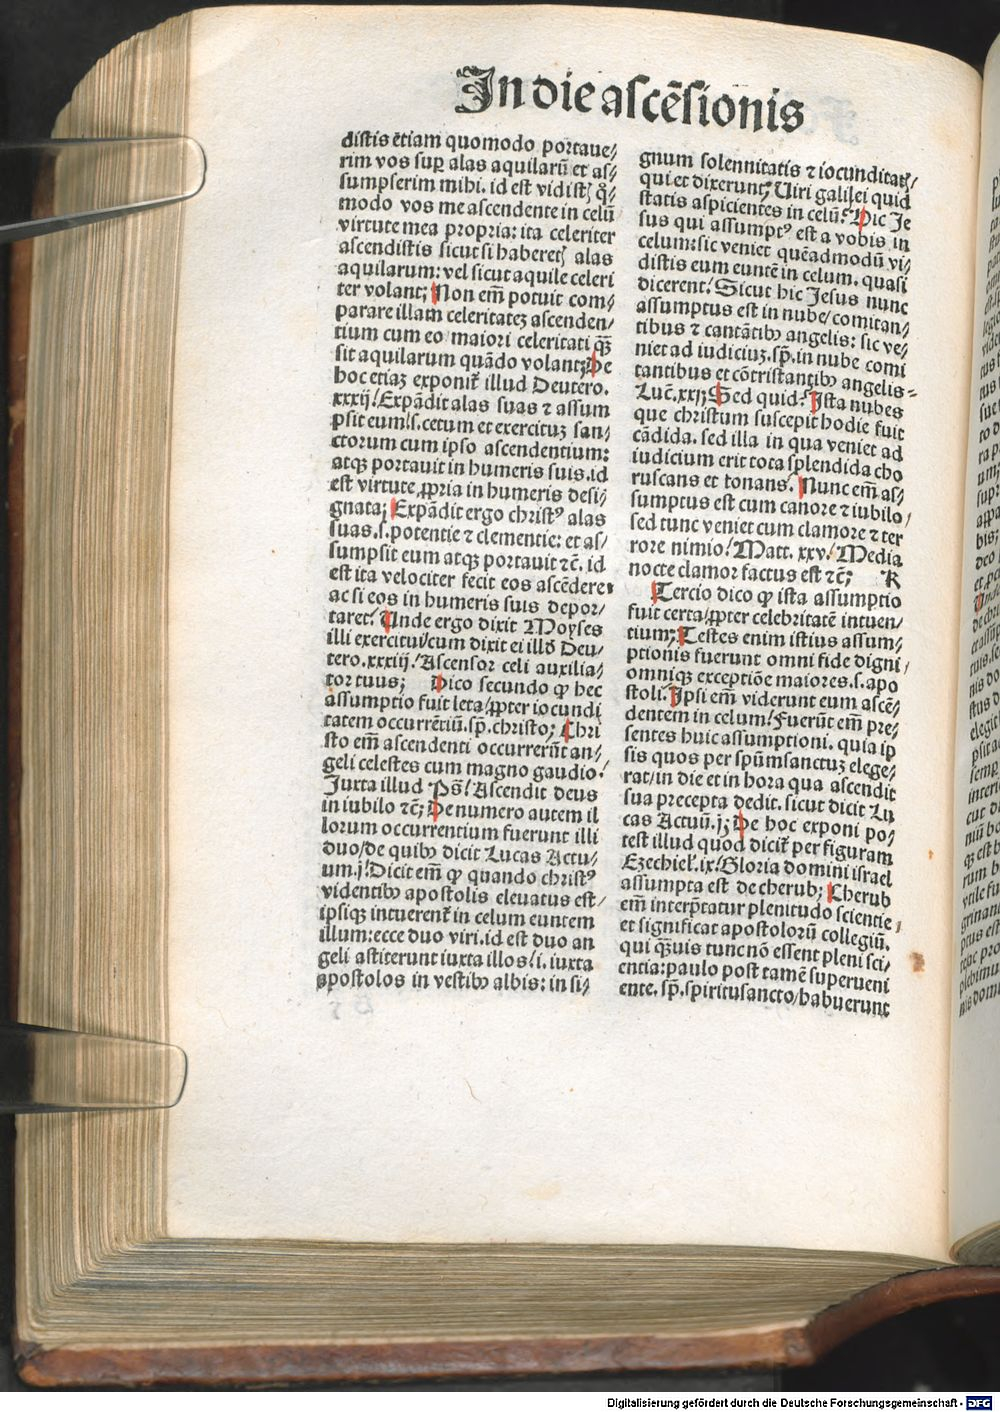 In die ascēsionis
distis etiam quomodo portaue⸗
rim vos suꝑ alas aquilarū et as⸗
sumpserim mihi. id est vidistꝭ q̈⸗
modo vos me ascendente in celū
virtute mea propria: ita celeriter
ascendistis sicut si haberetꝭ alas
aquilarum: vel sicut aquile celeri
ter volant; Non em̄ potuit com⸗
parare illam celeritatez ascenden⸗
tium cum eo maiori celeritati qꝫ̄
sit aquilarum quādo volant; De
hoc etiaz exponit᷑ illud Deutero.
xxxij/ Expādit alas suas ⁊ assum
psit eum/s. cetum et exercituz san⸗
ctorum cum ipso ascendentium:
atqꝫ portauit in humeris suis. id
est virtute ꝓpria in humeris desi⸗
gnata; Expādit ergo christꝰ alas
suas .s. potentie ⁊ clementie: et as⸗
sumpsit eum atqꝫ portauit ⁊c̄. id
est ita velociter fecit eos ascēdere
ac si eos in humeris suis depor⸗
taret/ Unde ergo dixit Moyses
illi exercitui/cum dixit ei illō Deu⸗
tero. xxxiij/ Ascensor celi auxilia⸗
tor tuus; Dico secundo ꝙ hec
assumptio fuit leta/ꝓpter iocundi
tatem occurrētiū. sꝑ. christo; Chri
sto em̄ ascendenti occurrerūt an⸗
geli celestes cum magno gaudio/
Juxta illud Ps̄/ Ascendit deus
in iubilo ⁊c̄; De numero autem il
lorum occurrentium fuerunt illi
duo/de quibꝰ dicit Lucas Actu⸗
um .j/ Dicit em̄ ꝙ quando christꝰ
videntibꝰ apostolis eleuatus est/
ipsiqꝫ intuerent᷑ in celum euntem
illum: ecce duo viri. id est duo an
geli astiterunt iuxta illos/ .i. iuxta
apostolos in vestibꝰ albis: in si⸗
gnum solennitatis ⁊ iocunditatꝭ/
qui et dixerunt; Uiri galilei quid
statis aspicientes in celū? Hic Je
sus qui assumptꝰ est a vobis in
celum: sic veniet quēadmodū vi⸗
distis eum euntē in celum. quasi
dicerent/ Sicut hic Jesus nunc
assumptus est in nube/comitan⸗
tibus ⁊ cantātibꝰ angelis: sic ve⸗
niet ad iudiciuz. sꝑ. in nube comi
tantibus et cōtristantibꝰ angelis⸗
Luc̄. xxj; Sed quid? Ista nubes
que christum suscepit hodie fuit
cādida. sed illa in qua veniet ad
iudicium erit tota splendida cho
ruscans et tonans. Nunc em̄ as⸗
sumptus est cum canore ⁊ iubilo/
sed tunc veniet cum clamore ⁊ ter
rore nimio/ Matt. xxv/ Media
nocte clamor factus est ⁊c̄; K
Tercio dico ꝙ ista assumptio
fuit certa/ꝓpter celebritatē intuen⸗
tium; Testes enim istius assum⸗
ptionis fuerunt omni fide digni/
omniqꝫ exceptiōe maiores. s. apo
stoli. Ipsi em̄ viderunt eum ascē⸗
dentem in celum/ Fuerūt em̄ pre⸗
sentes huic assumptioni. quia ip
sis quos per spūmsanctuz elege⸗
rat/in die et in hora qua ascendit
sua precepta dedit. sicut dicit Lu
cas Actuū. j; De hoc exponi po⸗
test illud quod dicit᷑ per figuram
Ezechieł. ix/ Gloria domini israel
assumpta est de cherub; Cherub
em̄ interp̄tatur plenitudo scientie
et significat apostolorū collegiū.
qui qꝫ̄uis tunc nō essent pleni sci⸗
entia: paulo post tamē superueni
ente. sꝑ. spiritusancto/habuerunt
Digitalisierung gefördert durch die Deutsche Forschungsgemeinschaft - DFG